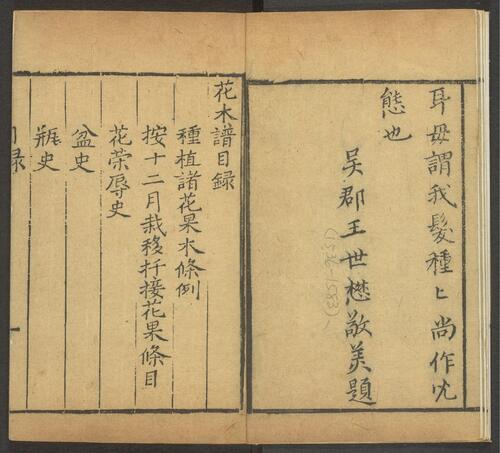 耳毋謂我髮種〻尚作尔
態也
吴郡王世懋敬美題
(1536-1583)
花木譜目錄
種植諸花果木條例
按十二月栽移扦接花果條目
花榮辱史
盆史
瓶史
目錄
一